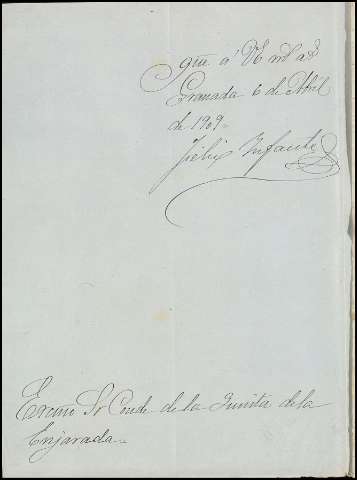 que a V E md as
Granada 6 de Abril
de 1909.
Felix Infante
Excmo Sr Conde de la Quinta de la
Enjarada.